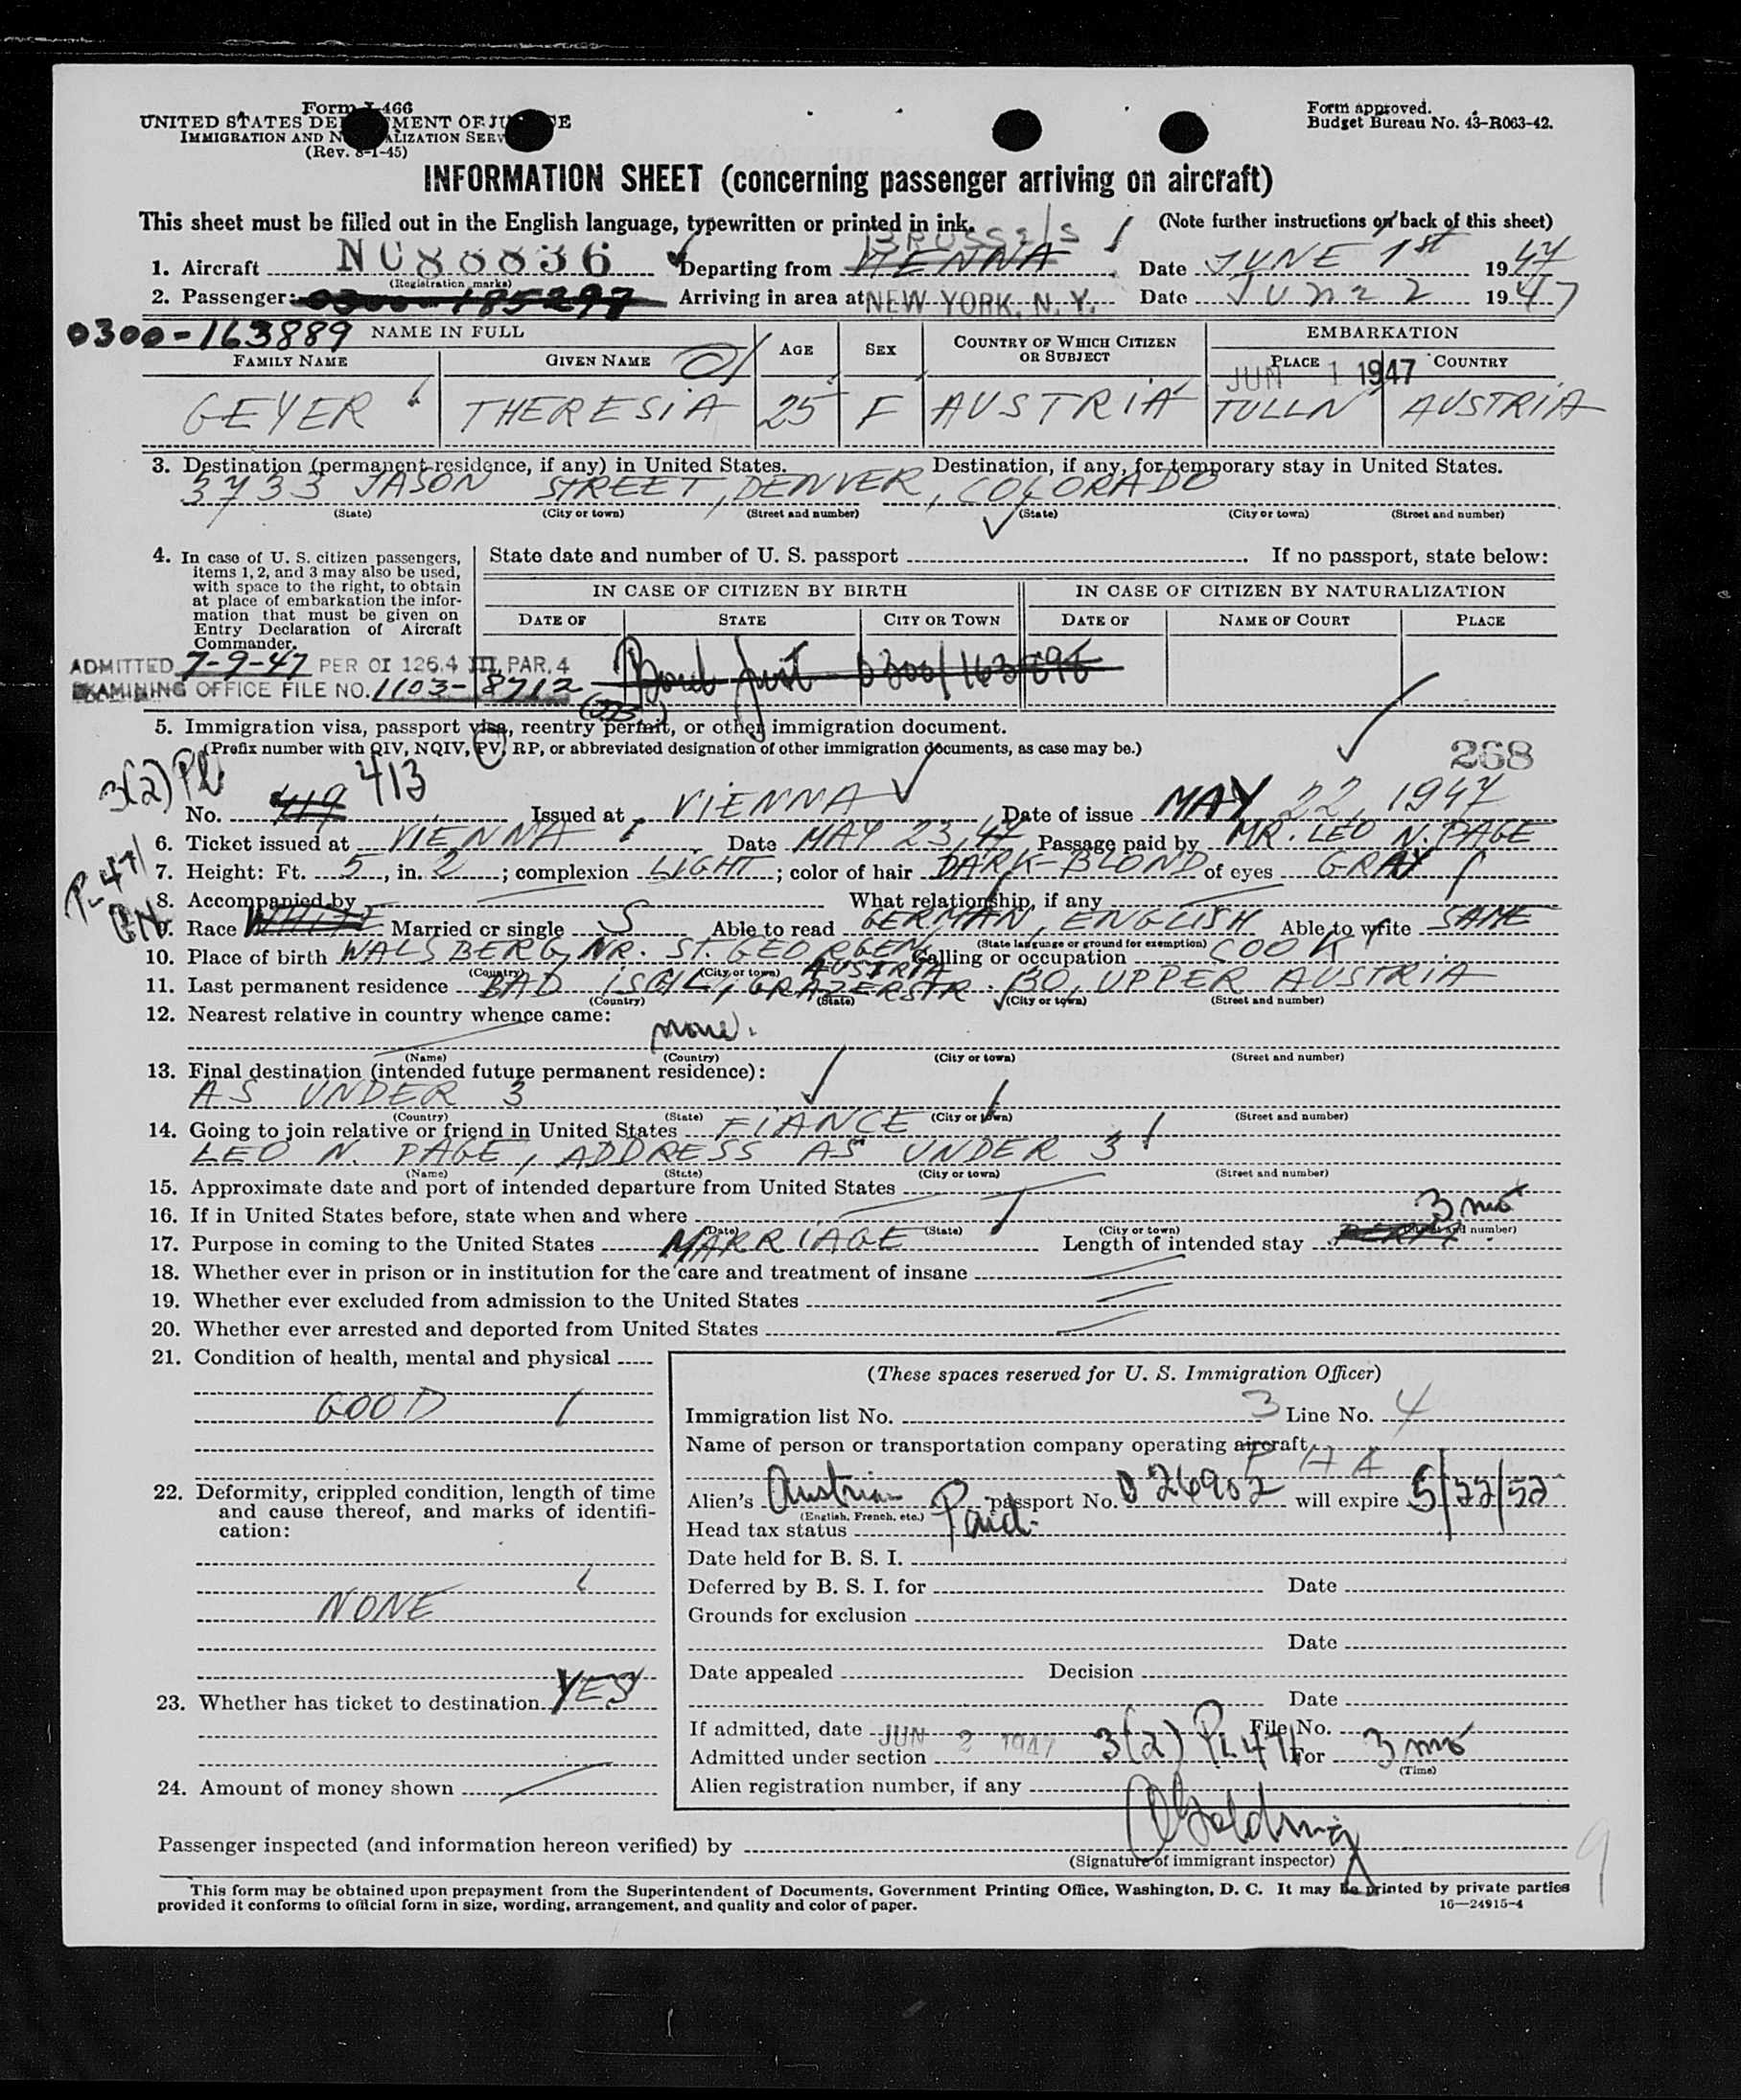 Form I-466
UNITED STATES DEPARTMENT OF JUSTICE
IMMIGRATION AND NATURALIZATION SERVICE
(Rev. 8-1-45)
Form approved.
Budget Bureau No. 43-R063-42.
INFORMATION SHEET (concerning passenger arriving on aircraft)
This sheet must be filled out in the English language, typewritten or printed in ink. (Note further instructions on back of this sheet)
BRUSSELS
1. Aircraft NC88836 Departing from VIENNA Date JUNE 1st 1947
(Registration marks)
2. Passenger: 0300-185297 Arriving in area at NEW YORK, N. Y. Date June 2 1947
0300-163889 NAME IN FULL EMBARKATION
FAMILY NAME GIVEN NAME AGE SEX COUNTRY OF WHICH CITIZEN OR SUBJECT PLACE COUNTRY
JUN 1 1947
GEYER THERESIA 25 F AUSTRIA TULLN AUSTRIA
3. Destination (permanent residence, if any) in United States. Destination, if any, for temporary stay in United States.
3733 JASON STREET, DENVER, COLORADO
(State) (City or town) (Street and number) (State) (City or town) (Street and number)
4. In case of U. S. citizen passengers, items 1, 2, and 3 may also be used, with space to the right, to obtain at place of embarkation the information that must be given on Entry Declaration of Aircraft Commander.
State date and number of U. S. passport If no passport, state below:
IN CASE OF CITIZEN BY BIRTH IN CASE OF CITIZEN BY NATURALIZATION
DATE OF STATE CITY OR TOWN DATE OF NAME OF COURT PLACE
ADMITTED 7-9-47 PER OI 126.4 III, PAR. 4
EXAMINING OFFICE FILE NO. 1103-8712
5. Immigration visa, passport visa, reentry permit, or other immigration document.
(Prefix number with QIV, NQIV, PV, RP, or abbreviated designation of other immigration documents, as case may be.)
268
3(2) PL
413
No. 419 Issued at VIENNA Date of issue MAY 22, 1947
6. Ticket issued at VIENNA Date MAY 23, 47 Passage paid by MR. LEO N. PAGE
P-471
7. Height: Ft. 5, in. 2; complexion LIGHT; color of hair DARK-BLOND of eyes GRAY
8. Accompanied by What relationship, if any
9. Race WHITE Married or single S Able to read GERMAN, ENGLISH Able to write SAME
(State language or ground for exemption)
10. Place of birth WALSBERG NR. ST. GEORGEN, AUSTRIA Calling or occupation COOK
(Country) (City or town)
11. Last permanent residence BAD ISCHL, GRAZERSTR. 30, UPPER AUSTRIA
(Country) (State) (City or town) (Street and number)
12. Nearest relative in country whence came:
none.
(Name) (Country) (City or town) (Street and number)
13. Final destination (intended future permanent residence):
AS UNDER 3
(Country) (State) (City or town) (Street and number)
14. Going to join relative or friend in United States FIANCE
LEO N. PAGE, ADDRESS AS UNDER 3
(Name) (State) (City or town) (Street and number)
15. Approximate date and port of intended departure from United States
16. If in United States before, state when and where
(Date) (State) (City or town) (Street and number)
3 mo
17. Purpose in coming to the United States MARRIAGE Length of intended stay
18. Whether ever in prison or in institution for the care and treatment of insane
19. Whether ever excluded from admission to the United States
20. Whether ever arrested and deported from United States
21. Condition of health, mental and physical
GOOD
22. Deformity, crippled condition, length of time and cause thereof, and marks of identification:
NONE
23. Whether has ticket to destination YES
24. Amount of money shown
(These spaces reserved for U. S. Immigration Officer)
Immigration list No. 3 Line No. 4
Name of person or transportation company operating aircraft
Alien's Austrian passport No. 026902 will expire 5/22/52
(English, French, etc.)
Head tax status Paid
Date held for B. S. I.
Deferred by B. S. I. for Date
Grounds for exclusion
Date
Date appealed Decision
Date
If admitted, date JUN 2 1947 File No.
Admitted under section 3(2) PL 471 For 3 mo
(Time)
Alien registration number, if any
Passenger inspected (and information hereon verified) by
(Signature of immigrant inspector)
9
This form may be obtained upon prepayment from the Superintendent of Documents, Government Printing Office, Washington, D. C. It may be printed by private parties
provided it conforms to official form in size, wording, arrangement, and quality and color of paper. 16—24915-4